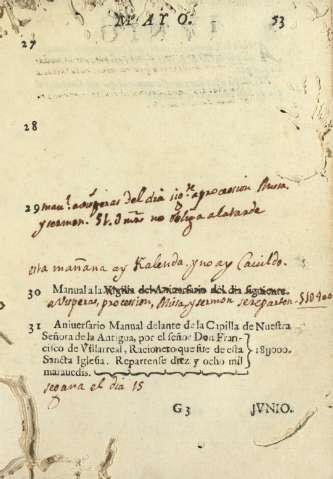 MAYO. 53
27
28
29 man.l a visperas del dia sig.te a procession Missa
y sermon. 51.0 mrs no obliga a la tarde
esta mañana ay Kalenda, y no ay Cavildo.
30 Manual a la Vigilia del Aniversario del dia siguiente.
a Visperas, procession, Missa, y sermon se reparten. 510400
31 Aniversario Manual delante de la Capilla de Nuestra
Señora de la Antigua, por el señor Don Fran-
cisco de Villarreal, Racionero que fue de esta
Sancta Iglesia. Repartense diez y ocho mil
maravedis.
18U000.
se gana el dia 15
G 3 JVNIO.